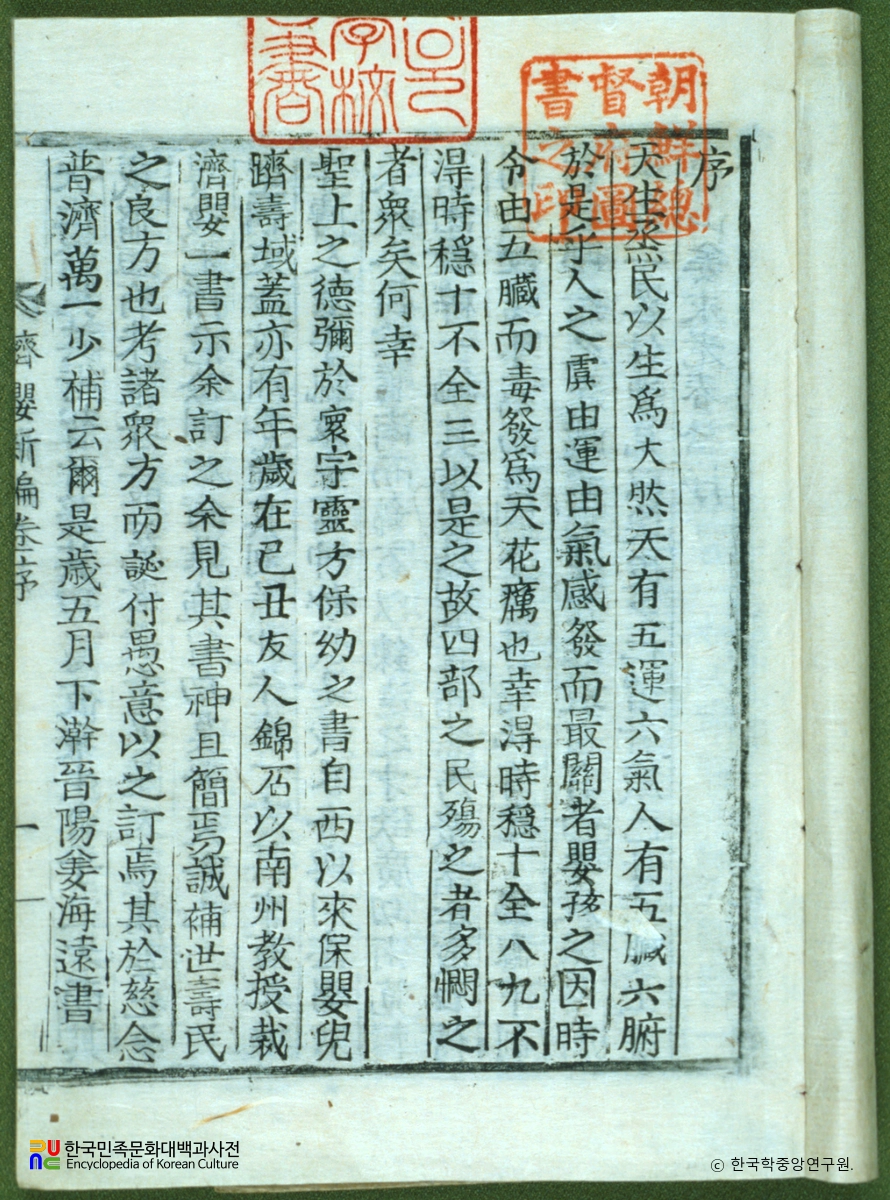 朝鮮總
督府圖
書之印
序
天生烝民以生爲大然天有五運六氣人有五臟六腑
於是乎人之虞由運由氣感發而最關者嬰孩之因時
令由五臟而毒發爲天花癘也幸淂時穩十全八九不
淂時穩十不全三以是之故四部之民殤之者多憫之
者衆矣何幸
聖上之德彌於寰宇靈方保幼之書自西以來保嬰兒
躋壽域蓋亦有年歲在己丑友人錦石以南州教授裁
濟嬰一書示余訂之余見其書神且簡焉誠補世壽民
之良方也考諸衆方而誕付愚意以之訂焉其於慈念
普濟萬一少補云爾是歲五月下澣晉陽姜海遠書
濟嬰新編卷序
一
한국민족문화대백과사전
Encyclopedia of Korean Culture
ⓒ 한국학중앙연구원.